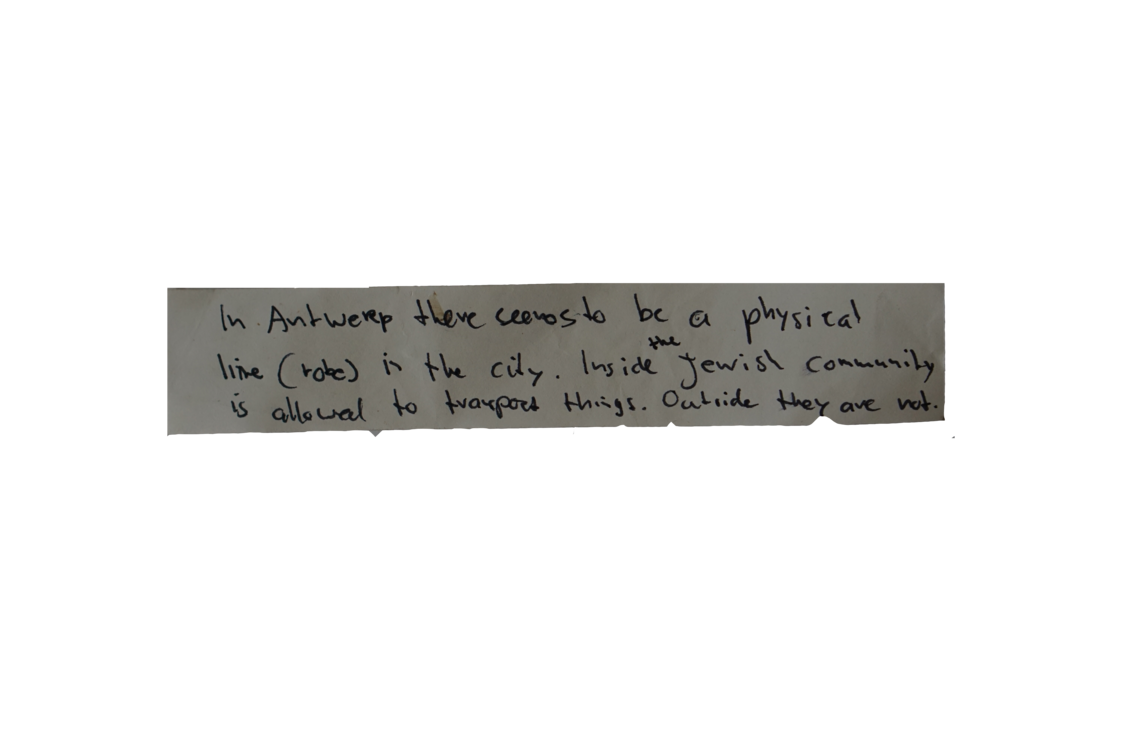 In Antwerp there seems to be a physical
line (robe) in the city. Inside the jewish community
is allowed to transport things. Outside they are not.